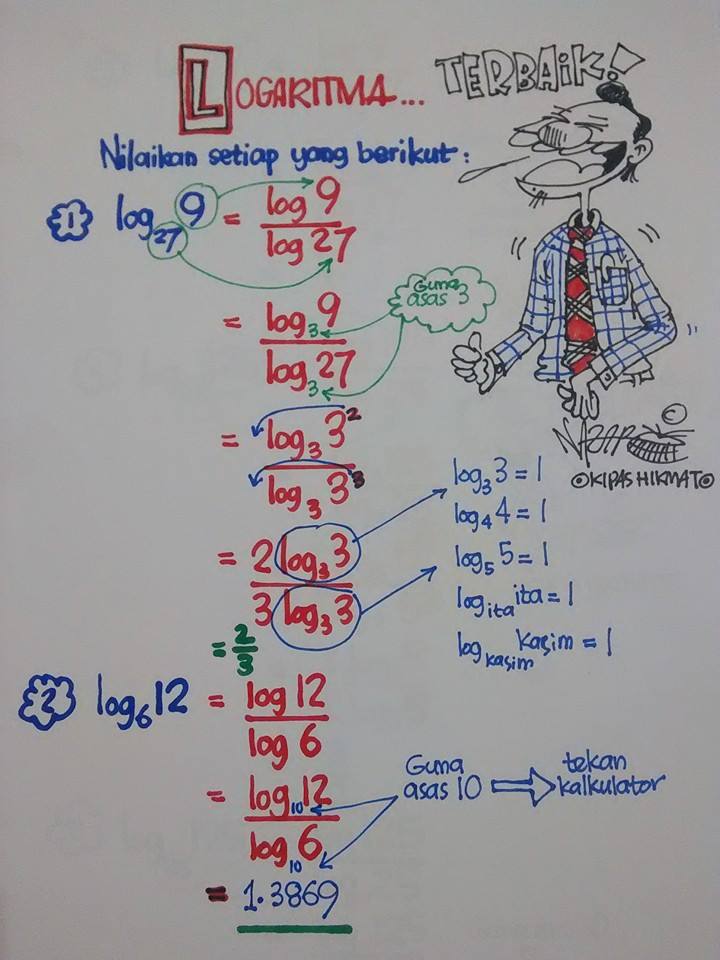 LOGARITMA...
TERBAIK!
Nilaikan setiap yang berikut:
1 log₂₇ 9 = log 9 / log 27
Guna asas 3
= log₃ 9 / log₃ 27
= log₃ 3² / log₃ 3³
= 2 log₃ 3 / 3 log₃ 3
= 2/3
©KIPASHIKMAT©
log₃ 3 = 1
log₄ 4 = 1
log₅ 5 = 1
log_ita ita = 1
log_kasim kasim = 1
2 log₆ 12 = log 12 / log 6
= log₁₀ 12 / log₁₀ 6
Guna asas 10 ⇒ tekan kalkulator
= 1.3869